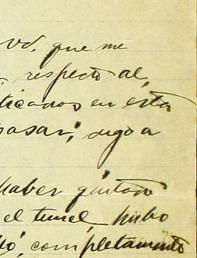 vd. que me
respecto al,
ticados en esta
pasar, digo a
haber quitado
el tunel, hubo
completamente